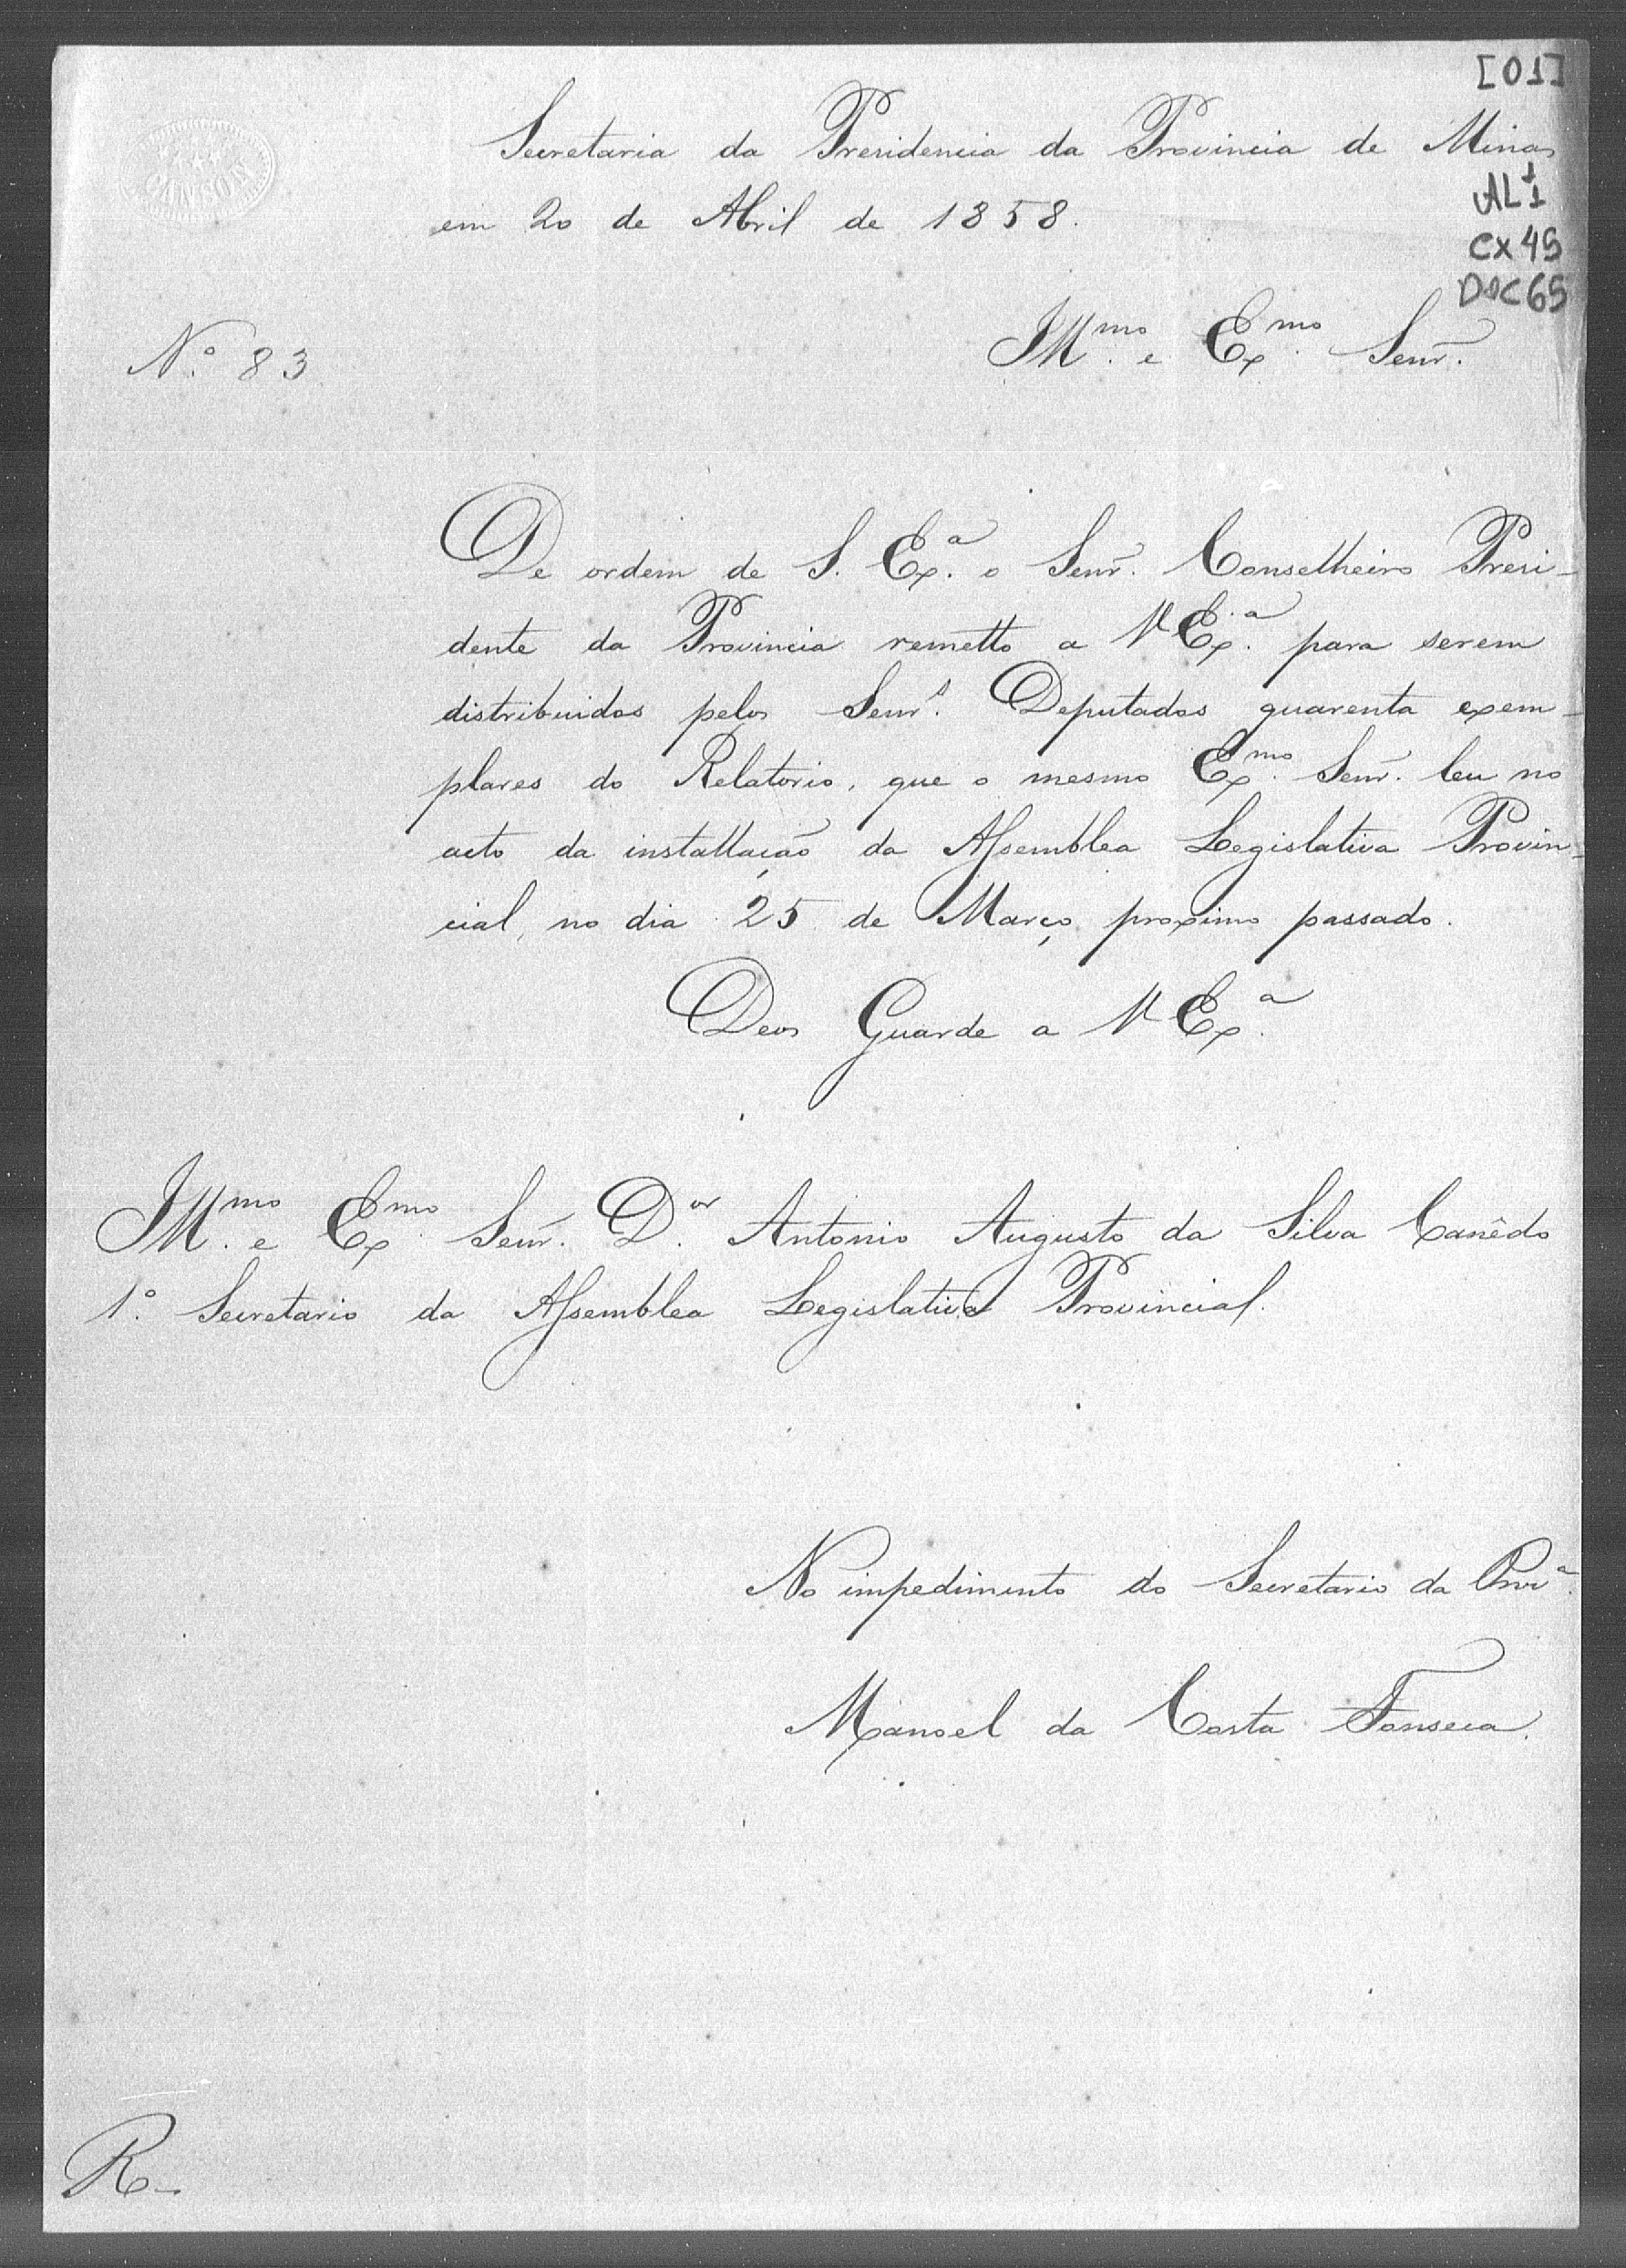 [01]
Secretaria da Presidencia da Provincia de Minas
em 20 de Abril de 1858.
AL 1
CX 49
DOC 65
CANSON
Nº 83
Illmo. e Exmo. Senr.
De ordem de S. Exa. o Senr. Conselheiro Presi-
dente da Provincia remetto a V Exa. para serem
distribuidos pelos Senrs. Deputados quarenta exem-
plares do Relatorio, que o mesmo Exmo. Senr. leu no
acto da installação da Assemblea Legislativa Provin-
cial, no dia 25 de Março proximo passado.
Deos Guarde a V Exa.
Illmo. e Exmo. Senr. Dor. Antonio Augusto da Silva Canêdo
1º. Secretario da Assemblea Legislativa Provincial.
No impedimento do Secretario da Prova.
Manoel da Costa Fonseca.
R